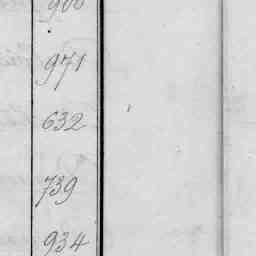 900
971
632
739
934